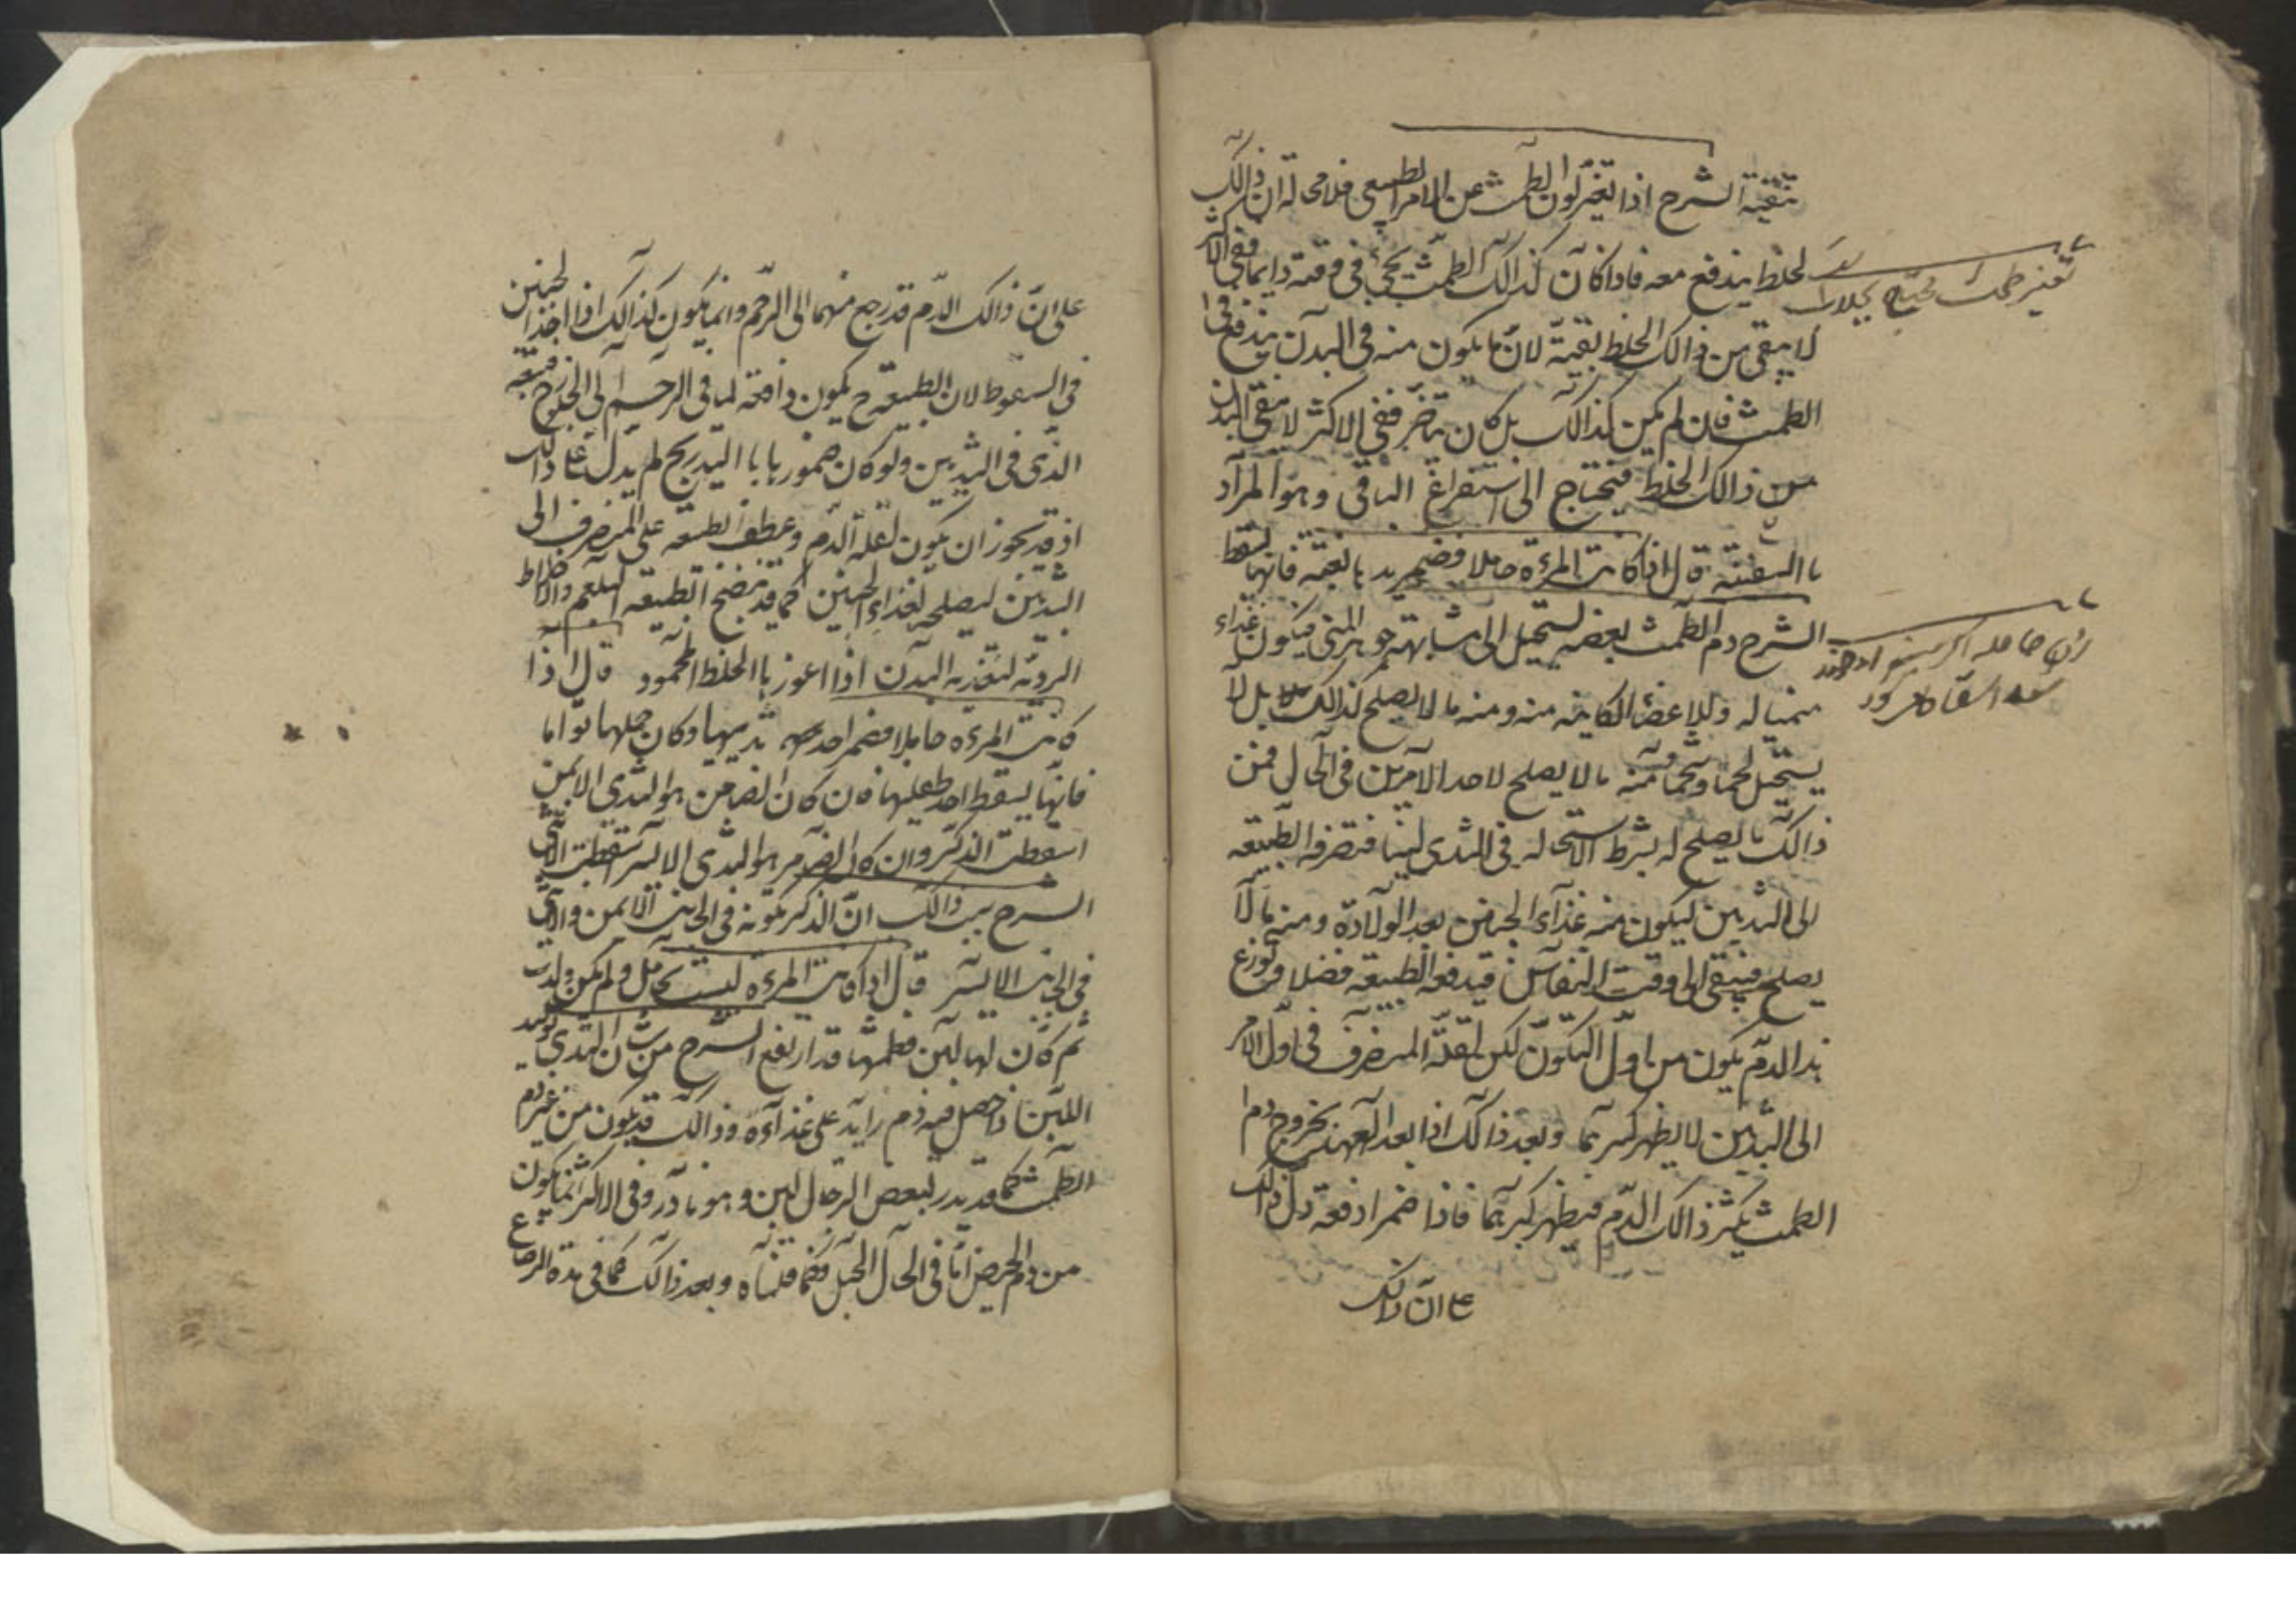 تنقية الشرح اذا تغير لون الطمث عن الامر الطبيعى فلا محالة ان ذالك
لخلط يندفع معه فاذا كان كذالك الطمث يجئ فى وقته دايما ففى الاكثر
لا يبقى من ذالك الخلط بقية لان ما يكون منه فى البدن يندفع فى
الطمث فان لم يكن كذالك بل كان يتاخر ففى الاكثر لا ينقى البدن
من ذالك الخلط فيحتاج الى استفراغ الباقى وهو المراد
با التنقية قال اذا كانت المرءة حاملا فضمر ثدياها بغتة فانها تسقط
الشرح دم الطمث بعضه يستحيل الى مشابهة جوهر المنى فيكون غذاء
منميا له وللاعضا الكاينة منه ومنه ما لا يصلح لذالك بل لا
يستحيل لحما وشحما ومنه ما لا يصلح لاحد الامرين فى الحال فمن
ذالك ما يصلح له بشرط الاستحالة فى الثدى لبنا فتصرفه الطبيعه
الى الثديين ليكون منه غذاء الجنين بعد الولادة ومنه ما لا
يصلح فيبقى الى وقت النفاس فيدفعه الطبيعه فضلا وتوزع
هذا الدم يكون من اول التكون لكن لقلة المنصرف فى اول الامر
الى الثديين لا يظهر كبرهما وبعد ذالك اذا بعد العهد بخروج دم
الطمث يكثر ذالك الدم فيظهر كبرهما فاذا ضمرا دفعة دل ذالك
على ان ذالك
تغير طمث
زن حامله اكر
على ان ذالك الدم قد رجع منهما الى الرحم وانما يكون كذالك اذا اخذ الجنين
فى السقوط لان الطبيعة ح يكون دافعة لما فى الرحم الى الخروج فيتبعه
الذى فى الثديين ولو كان ضمورهما با التدريج لم يدل على ذالك
اذ قد يجوز ان يكون لقلة الدم وعطف الطبيعه على المنصرف الى
الثديين ليصلحه لغذاء الجنين كما قد ينضج الطبيعه البلغم والاخلاط
الردية لتغذية البدن اذا اعوز با الخلط المحمود قال اذا
كانت المرءة حاملا فضمر احد ثدييها وكان حملها تواما
فانها يسقط احد طفليها فان كان الضامر هو الثدى الايمن
اسقطت الذكر وان كان الضامر هو الثدى الايسر اسقطت الانثى
الشرح سبب ذالك ان الذكر يكونه فى الجانب الايمن والانثى
فى الجانب الايسر قال اذا كانت المرءة ليست بحامل ولم يكن ولدت
ثم كان لها لبن فطمثها قد ارتفع الشرح من شان الثدى توليد
اللبن اذا حصل فيه دم زايد على غذاءه وذالك قد يكون من غير دم
الطمث كما قد يدر لبعض الرجال لبن وهو نادر وفى الاكثر انما يكون
من دم الحيض اما فى الحال الحبل فكما قلناه وبعد ذالك كما فى مدة الرضاع